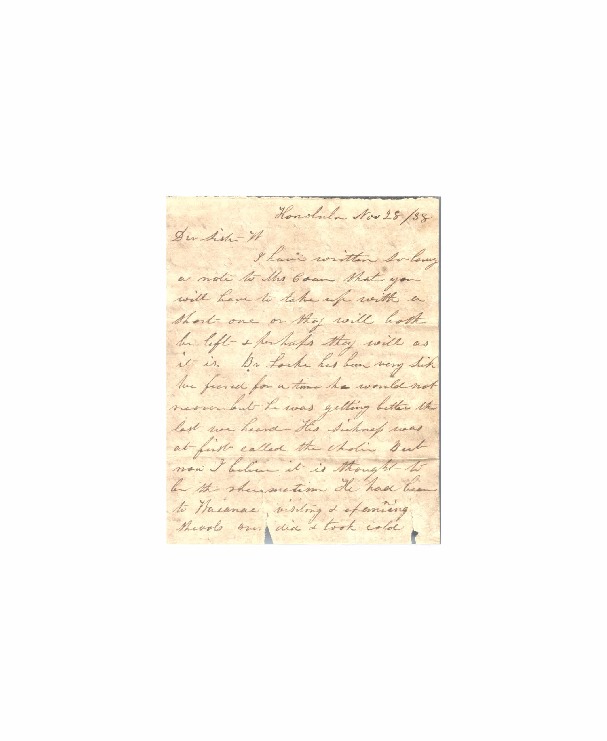 Honolulu Nov 28 /38
Dear Sister W
I have written so long
a note to Mrs Coan that you
will have to take up with a
short one or they will both
be left & perhaps they will as
it is. Br Locke has been very sick
We feared for a time he would not
recover but he was getting better the
last we heard His sickness was
at first called the cholic But
now I believe it is thought to
be the rheumatism He had been
to Waianae visiting &
did & took cold